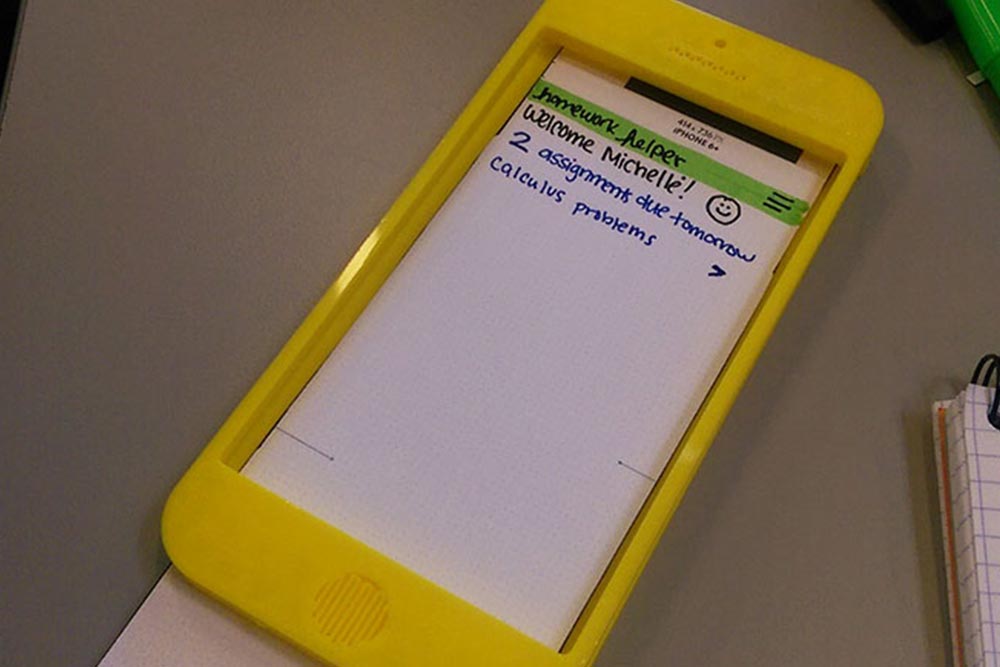 414 x 736
iPHONE 6+
homework helper
Welcome Michelle!
2 assignments due tomorrow
calculus problems
>